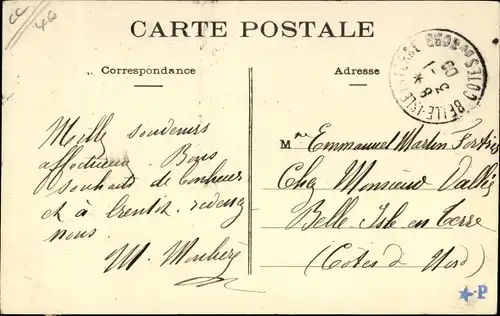 CC
46
CARTE POSTALE
Correspondance
Adresse
BELLE-ISLE-EN-TERRE
COTES DU NORD
Mille souvenirs
affectueux. Bons
souhaits de bonheur
et à bientôt.
nous.
M.
M Emmanuel Martin
Chez Monsieur Vallée
Belle Isle en Terre
(Côtes d Nord)
P